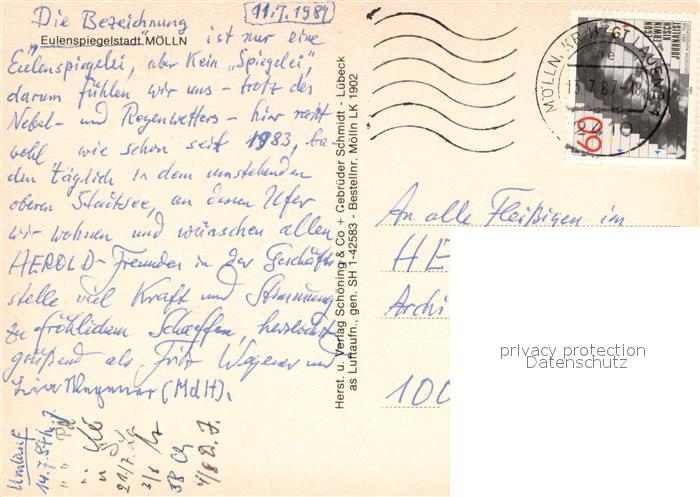 11.7.1987
Die Bezeichnung
"Eulenspiegelstadt" MÖLLN
ist nur eine
Eulenspiegelei, aber kein "Spiegelei",
darum fühlen wir uns - trotz des
Nebel- und Regenwetters - hier recht
wohl wie schon seit 1983, ba-
den täglich in dem umstehenden
oberen Stadtsee, an dessen Ufer
wir wohnen und wünschen allen
HEROLD-Freunden in der Geschäfts-
stelle viel Kraft und Stimmung
zu fröhlichem Schaffen, herzlichst
grüßend als Fritz Wagener und
Wagener (MdH).
Umlauf
14.7.87
21/7.
3/8
4/8
Herst. u. Verlag Schöning & Co + Gebrüder Schmidt - Lübeck
as Luftaufn., gen. SH 1-42583 - Bestellnr. Mölln LK 1902
MÖLLN, KR HZGT LAUENBURG
13.7.87-18
2410
EGON
ERWIN
KISCH
JOURNALIST
60
An alle Fleißigen im
HE
Archi
100
privacy protection
Datenschutz